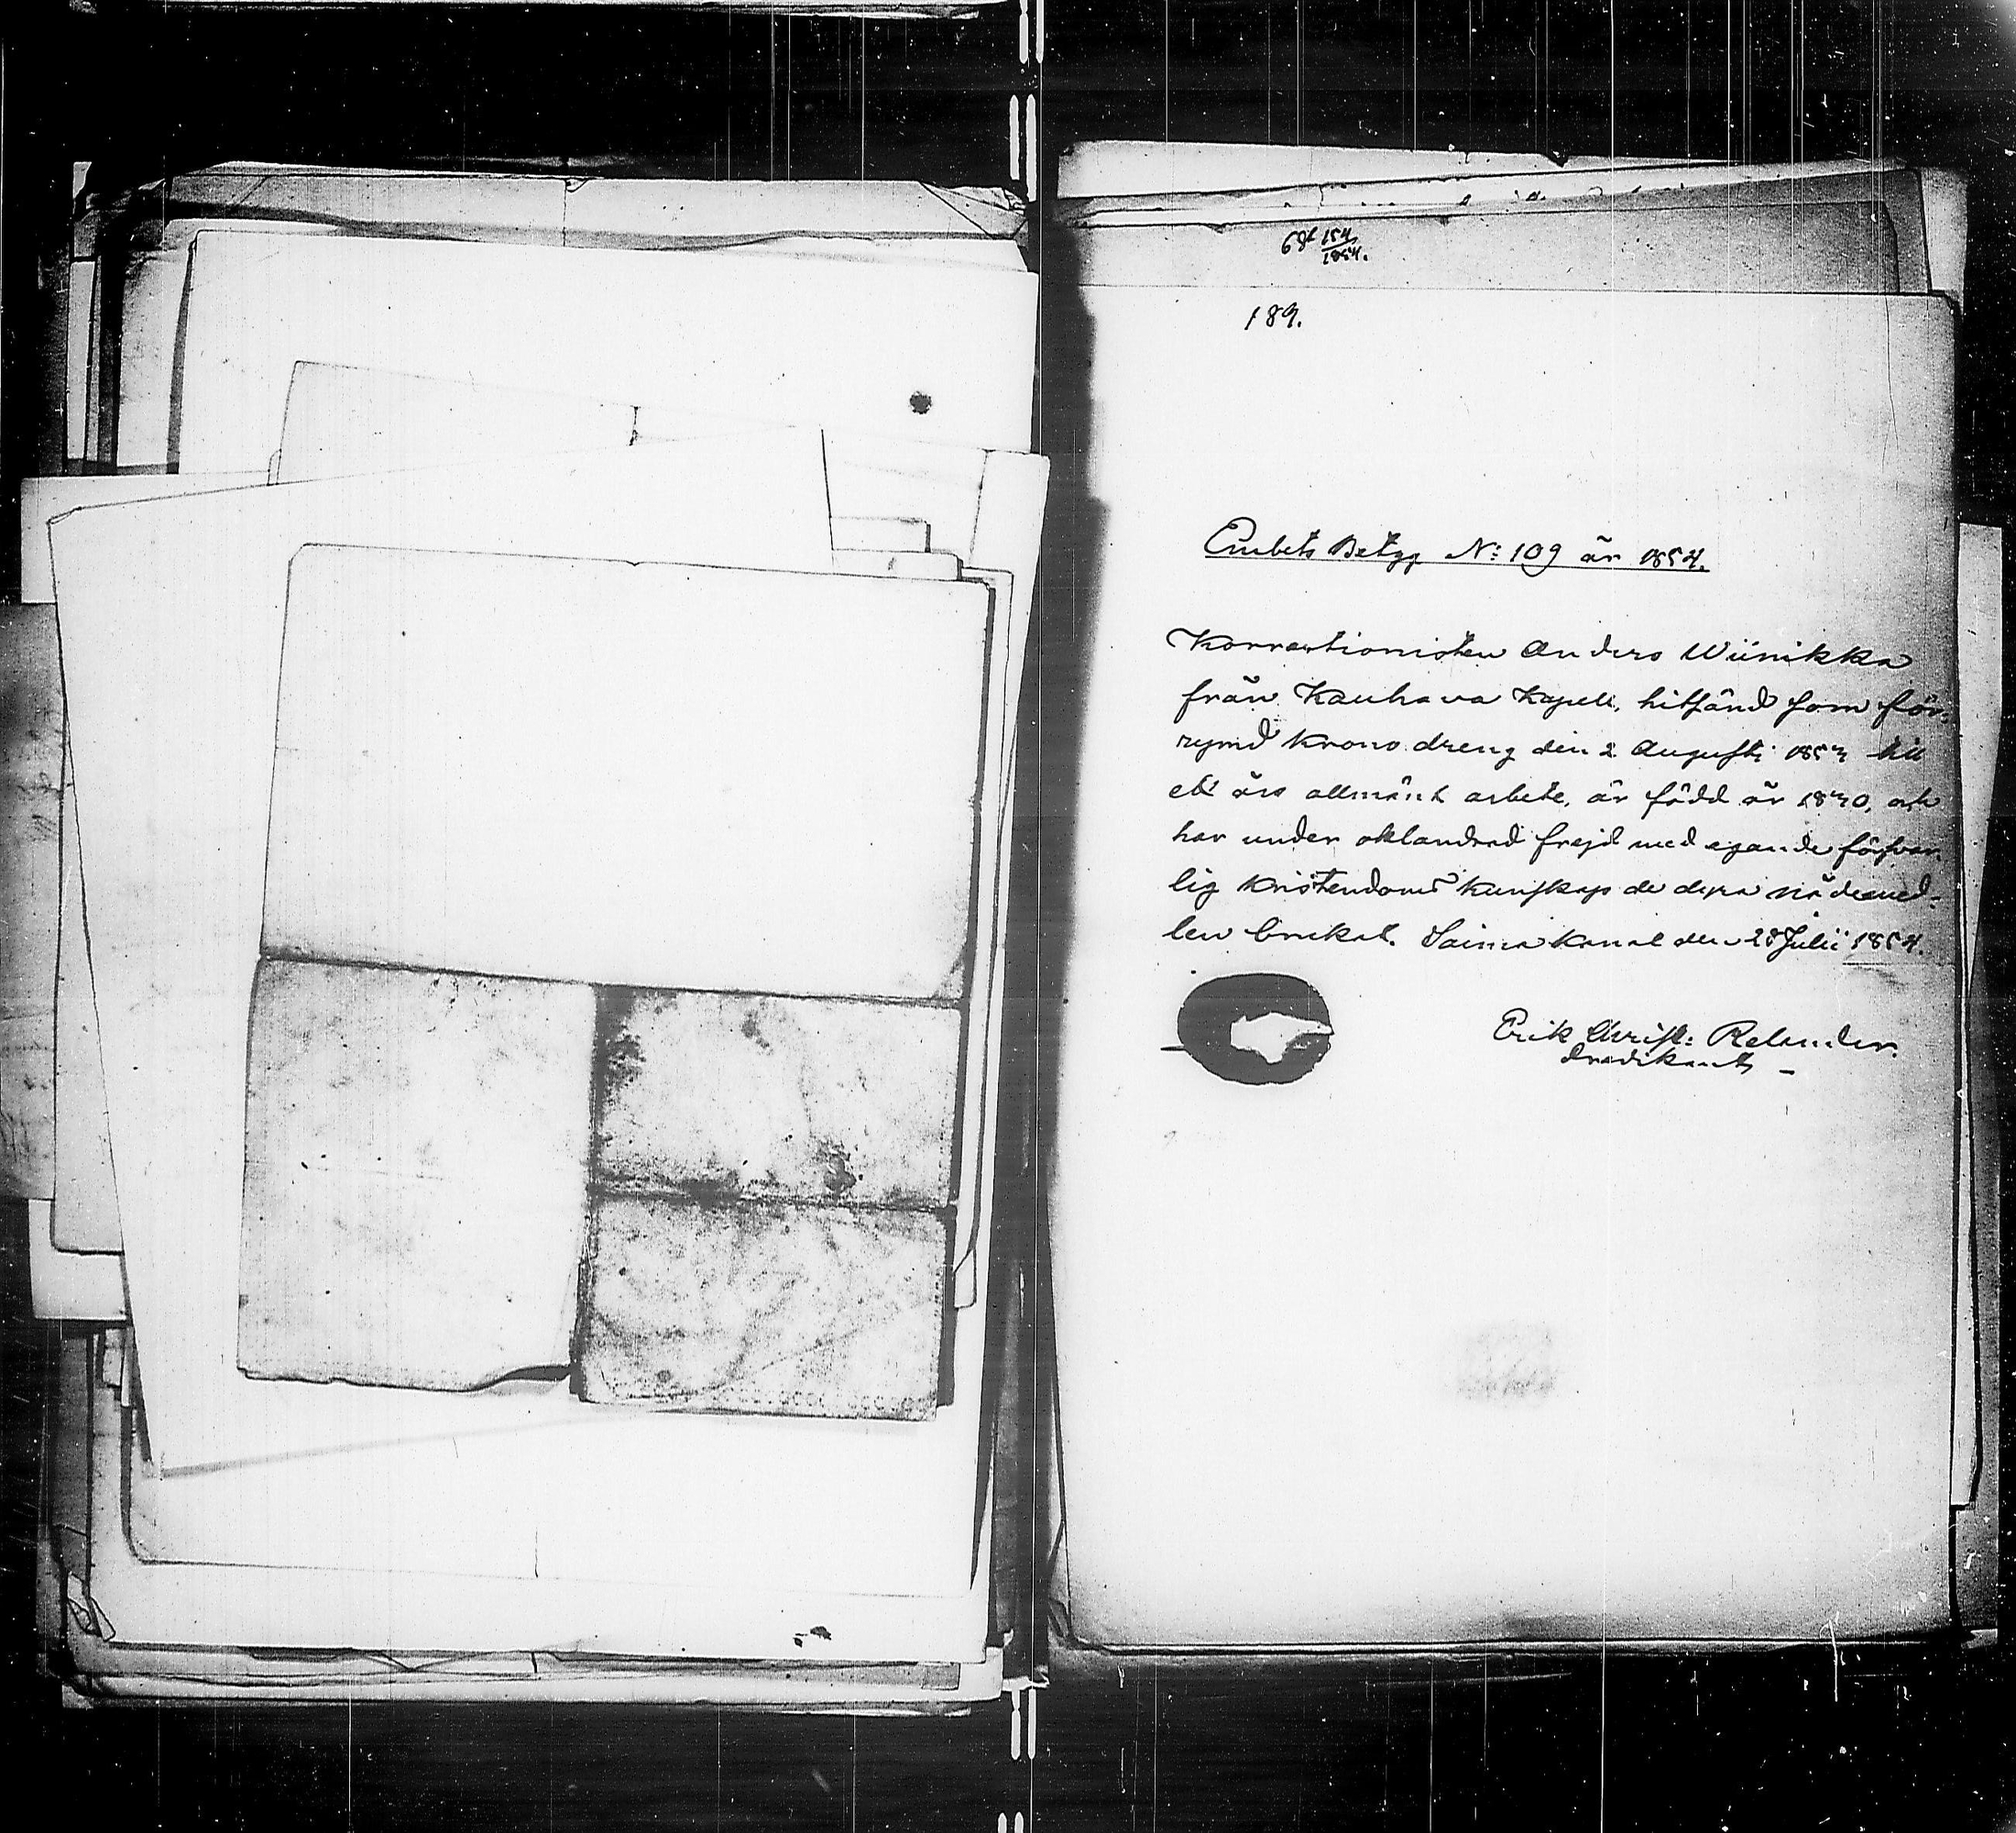 154
1854.
189.
Embets Betyg N: 109 år 1854.
Korrectionisten Anders Wiinikka
från Kauhava Kapell, hitsänd som för-
rymd Krono dreng den 2 Augusti 1853 till
ett års allmänt arbete, är född år 1830, och
har under oklandrad frejd med egande försvar-
lig Kristendoms kunskap de dyra nådemed-
len brukat. Saima Kanal den 28 Julii 1854.
Erik Christ: Relander.
Predikant